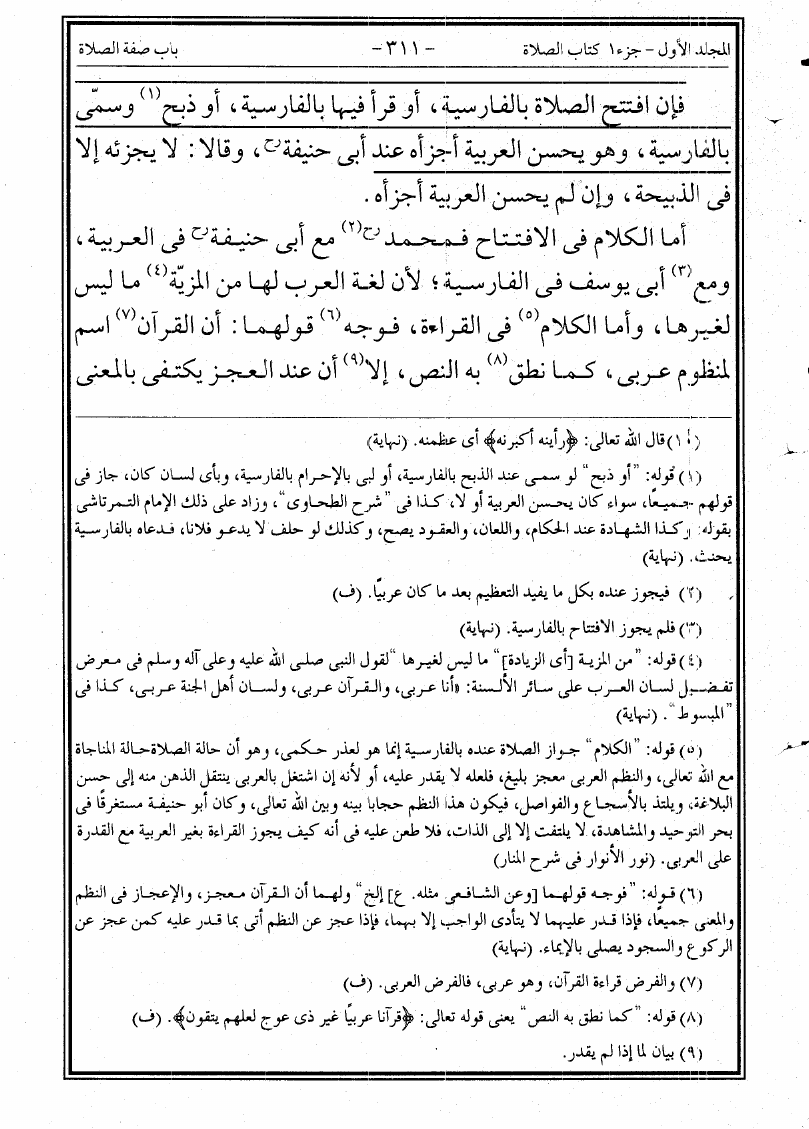 المجلد الأول – جزء ١ كتاب الصلاة - ٣١١ - باب صفة الصلاة
فإن افتتح الصلاة بالفارسية، أو قرأ فيها بالفارسية، أو ذبح(١) وسمّى
بالفارسية، وهو يحسن العربية أجزأه عند أبى حنيفةؒ، وقالا: لا يجزئه إلا
فى الذبيحة، وإن لم يحسن العربية أجزأه.
أما الكلام فى الافتتاح فمحمدؒ(٢) مع أبى حنيفةؒ فى العربية،
ومع(٣) أبى يوسف فى الفارسية؛ لأن لغة العرب لها من المزيّة(٤) ما ليس
لغيرها، وأما الكلام(٥) فى القراءة، فوجه(٦) قولهما: أن القرآن(٧) اسم
لمنظوم عربى، كما نطق(٨) به النص، إلا(٩) أن عند العجز يكتفى بالمعنى
قال الله تعالى: ﴿رأينه أكبرنه﴾ أى عظمنه. (نهاية)
(١) قوله: "أو ذبح" لو سمى عند الذبح بالفارسية، أو لبى بالإحرام بالفارسية، وبأى لسان كان، جاز فى
قولهم جميعًا، سواء كان يحسن العربية أو لا، كذا فى "شرح الطحاوى"، وزاد على ذلك الإمام التمرتاشى
بقوله: وكذا الشهادة عند الحكام، واللعان، والعقود يصح، وكذلك لو حلف لا يدعو فلانا، فدعاه بالفارسية
يحنث. (نهاية)
(٢) فيجوز عنده بكل ما يفيد التعظيم بعد ما كان عربيًا. (ف)
(٣) فلم يجوز الافتتاح بالفارسية. (نهاية)
(٤) قوله: "من المزية [أى الزيادة]" ما ليس لغيرها "لقول النبى صلى الله عليه وعلى آله وسلم فى معرض
تفضيل لسان العرب على سائر الألسنة: «أنا عربى، والقرآن عربى، ولسان أهل الجنة عربى، كذا فى
"المبسوط". (نهاية)
(٥) قوله: "الكلام" جواز الصلاة عنده بالفارسية إنما هو لعذر حكمى، وهو أن حالة الصلاة حالة المناجاة
مع الله تعالى، والنظم العربى معجز بليغ، فلعله لا يقدر عليه، أو لأنه إن اشتغل بالعربى ينتقل الذهن منه إلى حسن
البلاغة، ويلتذ بالأسجاع والفواصل، فيكون هذا النظم حجابا بينه وبين الله تعالى، وكان أبو حنيفة مستغرقًا فى
بحر التوحيد والمشاهدة، لا يلتفت إلا إلى الذات، فلا طعن عليه فى أنه كيف يجوز القراءة بغير العربية مع القدرة
على العربى. (نور الأنوار فى شرح المنار)
(٦) قوله: "فوجه قولهما [وعن الشافعى مثله. ع] إلخ" ولهما أن القرآن معجز، والإعجاز فى النظم
والمعنى جميعًا، فإذا قدر عليهما لا يتأدى الواجب إلا بهما، فإذا عجز عن النظم أتى بما قدر عليه كمن عجز عن
الركوع والسجود يصلى بالإيماء. (نهاية)
(٧) والفرض قراءة القرآن، وهو عربى، فالفرض العربى. (ف)
(٨) قوله: "كما نطق به النص" يعنى قوله تعالى: ﴿قرآنا عربيًا غير ذى عوج لعلهم يتقون﴾. (ف)
(٩) بيان لما إذا لم يقدر.